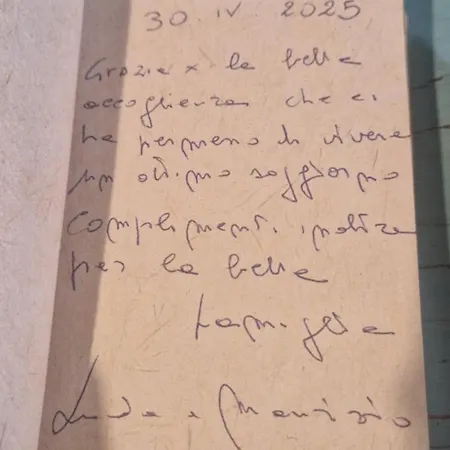 30. IV 2025
Grazie x la bella
accoglienza che ci
ha permesso di vivere
un ottimo soggiorno
complimenti inoltre
per la bella
famiglia
e Maurizio